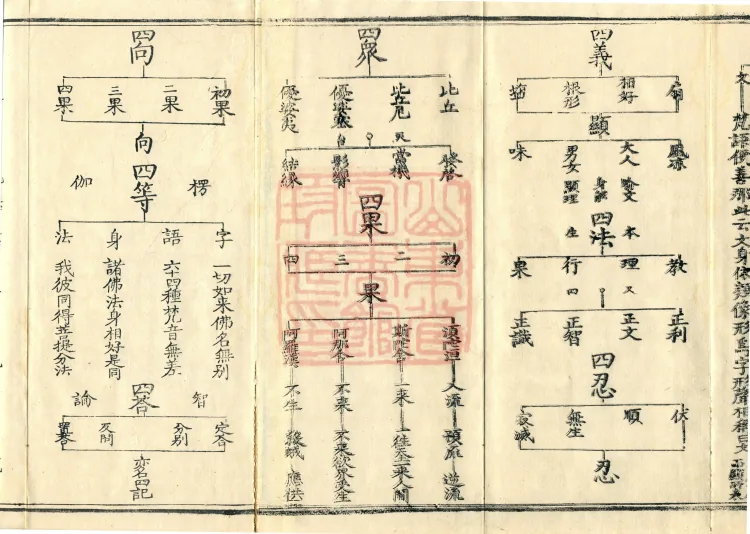 四義
相好
根形
顯
味
大人
男女
身
顯理
四法
教
理
行
果
本
又
生
四
正利
正文
正智
正識
四忍
伏
順
無生
寂滅
忍
四衆
比丘
比丘尼
優婆塞
優婆夷
又
白
發啓
當機
影響
結緣
四果
初
二
三
四
果
須陀洹
入流
預廉
逆流
斯陀含
一來
一往天一來人間
阿那含
不來
不來欲界受生
阿羅漢
不生
殺賊
應供
四向
初果
二果
三果
四果
向
四等
楞
伽
字
一切如来佛名無別
語
六十四種梵音無差
身
諸佛法身相好是同
法
我彼同得菩提分法
四答
智
論
定答
分別
反問
置答
亦名四記